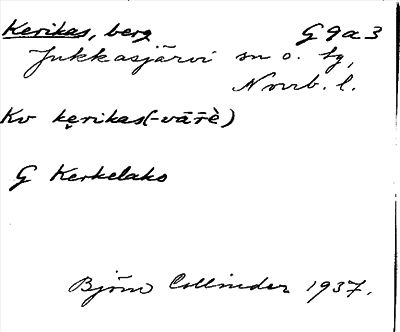 Kerikas, berg G9a3
Jukkasjärvi sn o. tg,
Norrb. l.
Kv kęrikas(-vārè)
G Kerkelako
Björn Collinder 1937.